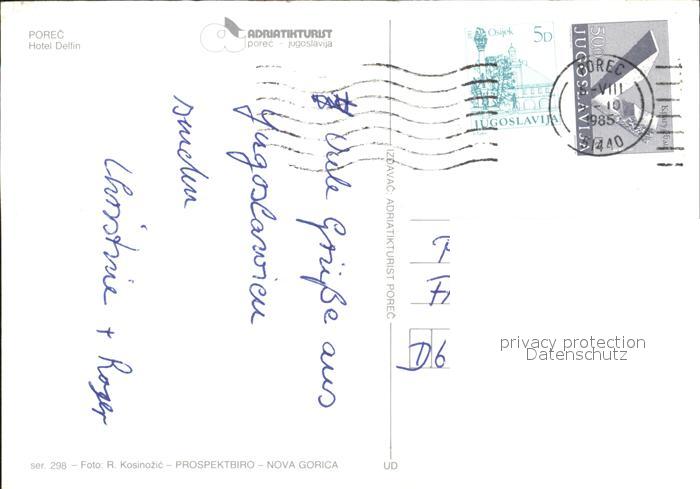 POREČ
Hotel Delfin
ADRIATIKTURIST
poreč - jugoslavija
Osijek 5D
JUGOSLAVIJA
JUGOSLAVIJA
POREČ
-VIII
-10
985
440
Viele Grüße aus
Jugoslawien
senden
Christine + Roger
IZDAVAČ: ADRIATIKTURIST POREČ
D 6
privacy protection
Datenschutz
ser. 298 – Foto: R. Kosinožić – PROSPEKTBIRO – NOVA GORICA
UD